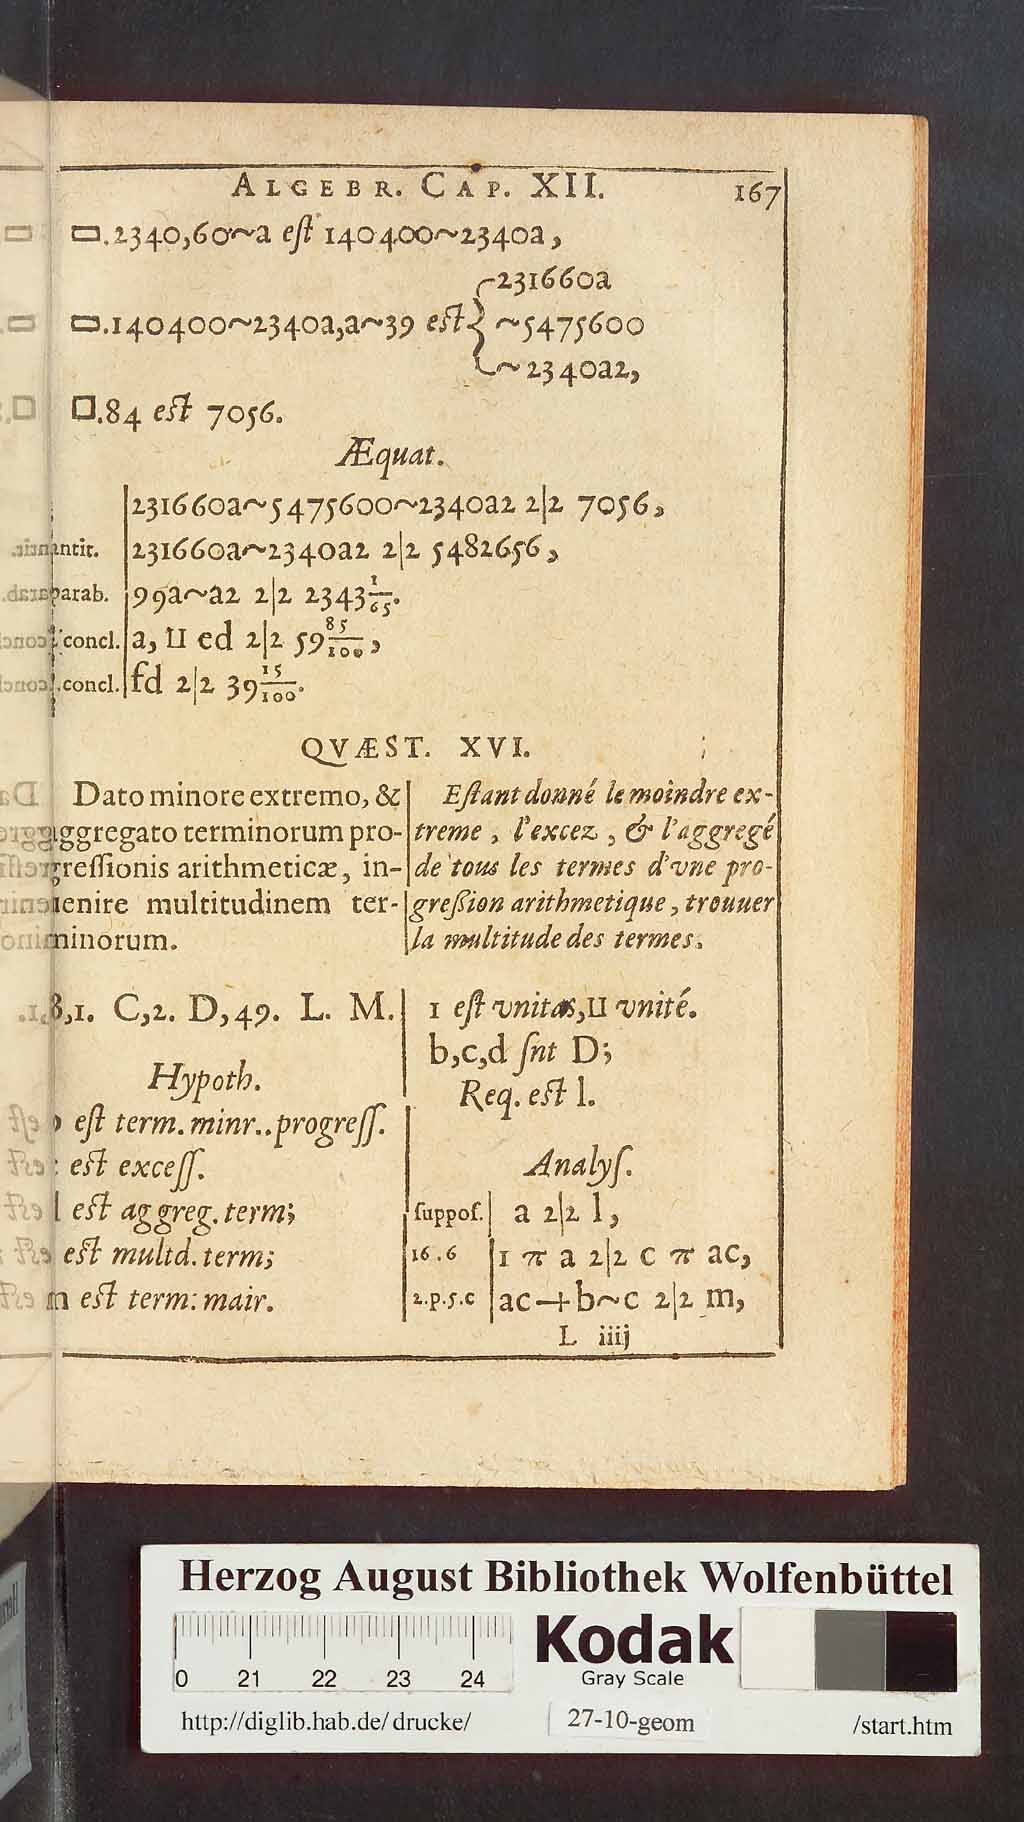 ALGEBR. CAP. XII. 167
▭.2340,60~a est 140400~2340a,
▭.140400~2340a,a~39 est { 231660a
~5475600
~2340a2,
□.84 est 7056.
Æquat.
231660a~5475600~2340a2 2|2 7056,
antit. 231660a~2340a2 2|2 5482656,
parab. 99a~a2 2|2 2343 1/65.
concl. a, ⊔ ed 2|2 59 85/100,
.concl. fd 2|2 39 15/100.
QVÆST. XVI.
Dato minore extremo, &
aggregato terminorum pro-
gressionis arithmeticæ, in-
uenire multitudinem ter-
minorum.
Estant donné le moindre ex-
treme, l'excez, & l'aggregé
de tous les termes d'vne pro-
gression arithmetique, trouuer
la multitude des termes.
B,1. C,2. D,49. L. M.
Hypoth.
b est term. minr..progress.
c est excess.
d est aggreg. term;
est multd. term;
m est term: mair.
1 est vnitas, ⊔ vnité.
b,c,d snt D;
Req. est l.
Analys.
suppos. a 2|2 l,
16.6 1 π a 2|2 c π ac,
2.p.5.c ac+b~c 2|2 m,
L iiij
Herzog August Bibliothek Wolfenbüttel
0 21 22 23 24
Kodak
Gray Scale
http://diglib.hab.de/drucke/ 27-10-geom /start.htm